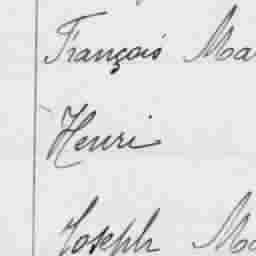 François Ma
Henri
Joseph Ma